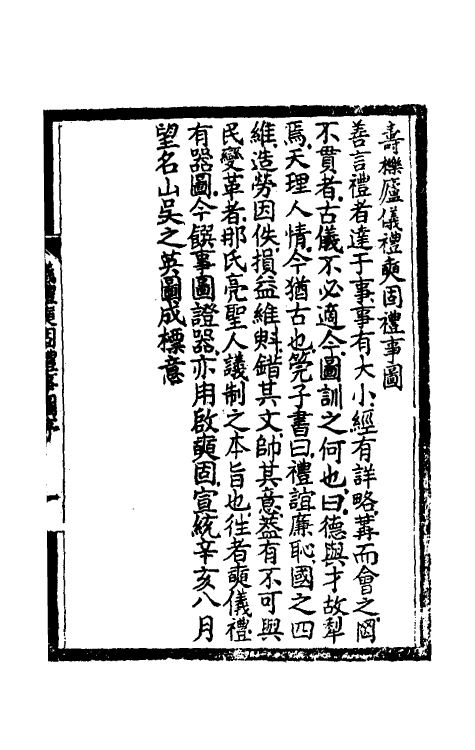 壽櫟廬儀禮奭固禮事圖
善言禮者達于事事有大小經有詳略冓而會之罔
不貫者古儀不必適今圖訓之何也曰德與才故犁
焉天理人情今猶古也筦子書曰禮誼廉恥國之四
維造勞因佚損益維斞錯其文帥其意葢有不可與
民變革者那氏亮聖人議制之本旨也往者奭儀禮
有器圖今饌事圖證器亦用啟奭固宣統辛亥八月
望名山吳之英圖成標意
儀禮奭固禮事圖序
一